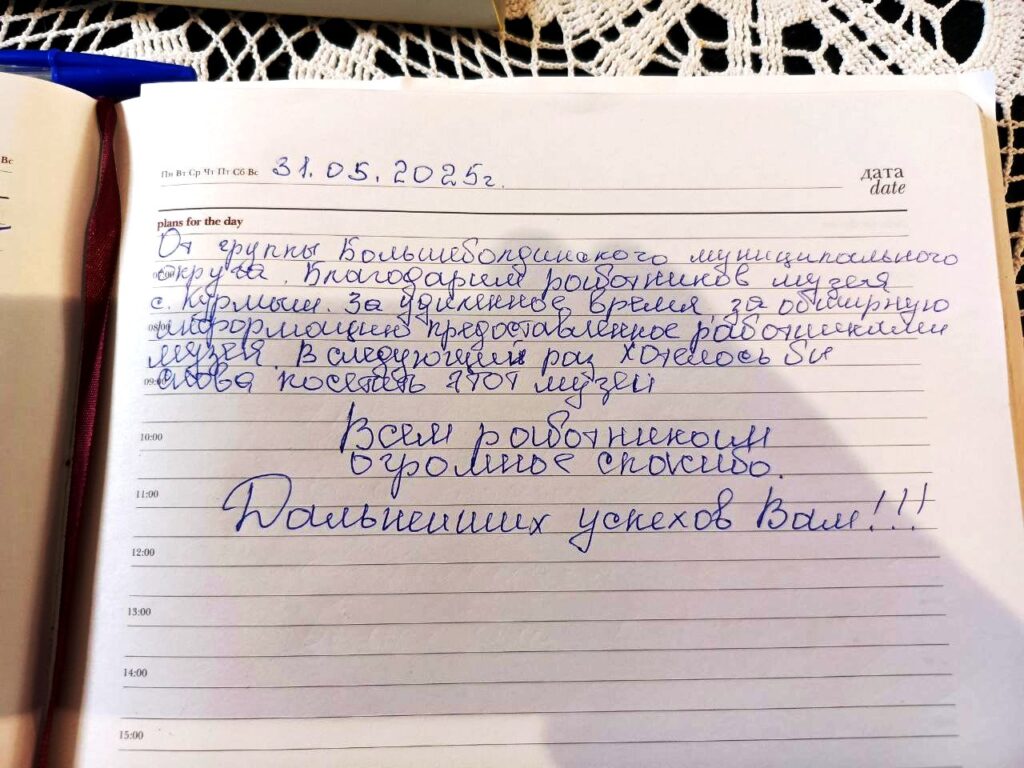 Вс
Пн Вт Ср Чт Пт Сб Вс 31.05.2025г.
дата
date
plans for the day
От группы Большеболдинского муниципального
округа. Благодарим работников музея
с. Курмыш. За уделенное время, за обширную
08/00
информацию предоставленное работниками
музея. В следующий раз хотелось бы
09:00
снова посетать этот музей
Всем работникам
10:00
огромное спасибо.
11:00
Дальнейших успехов Вам!!!
12:00
13:00
14:00
15:00